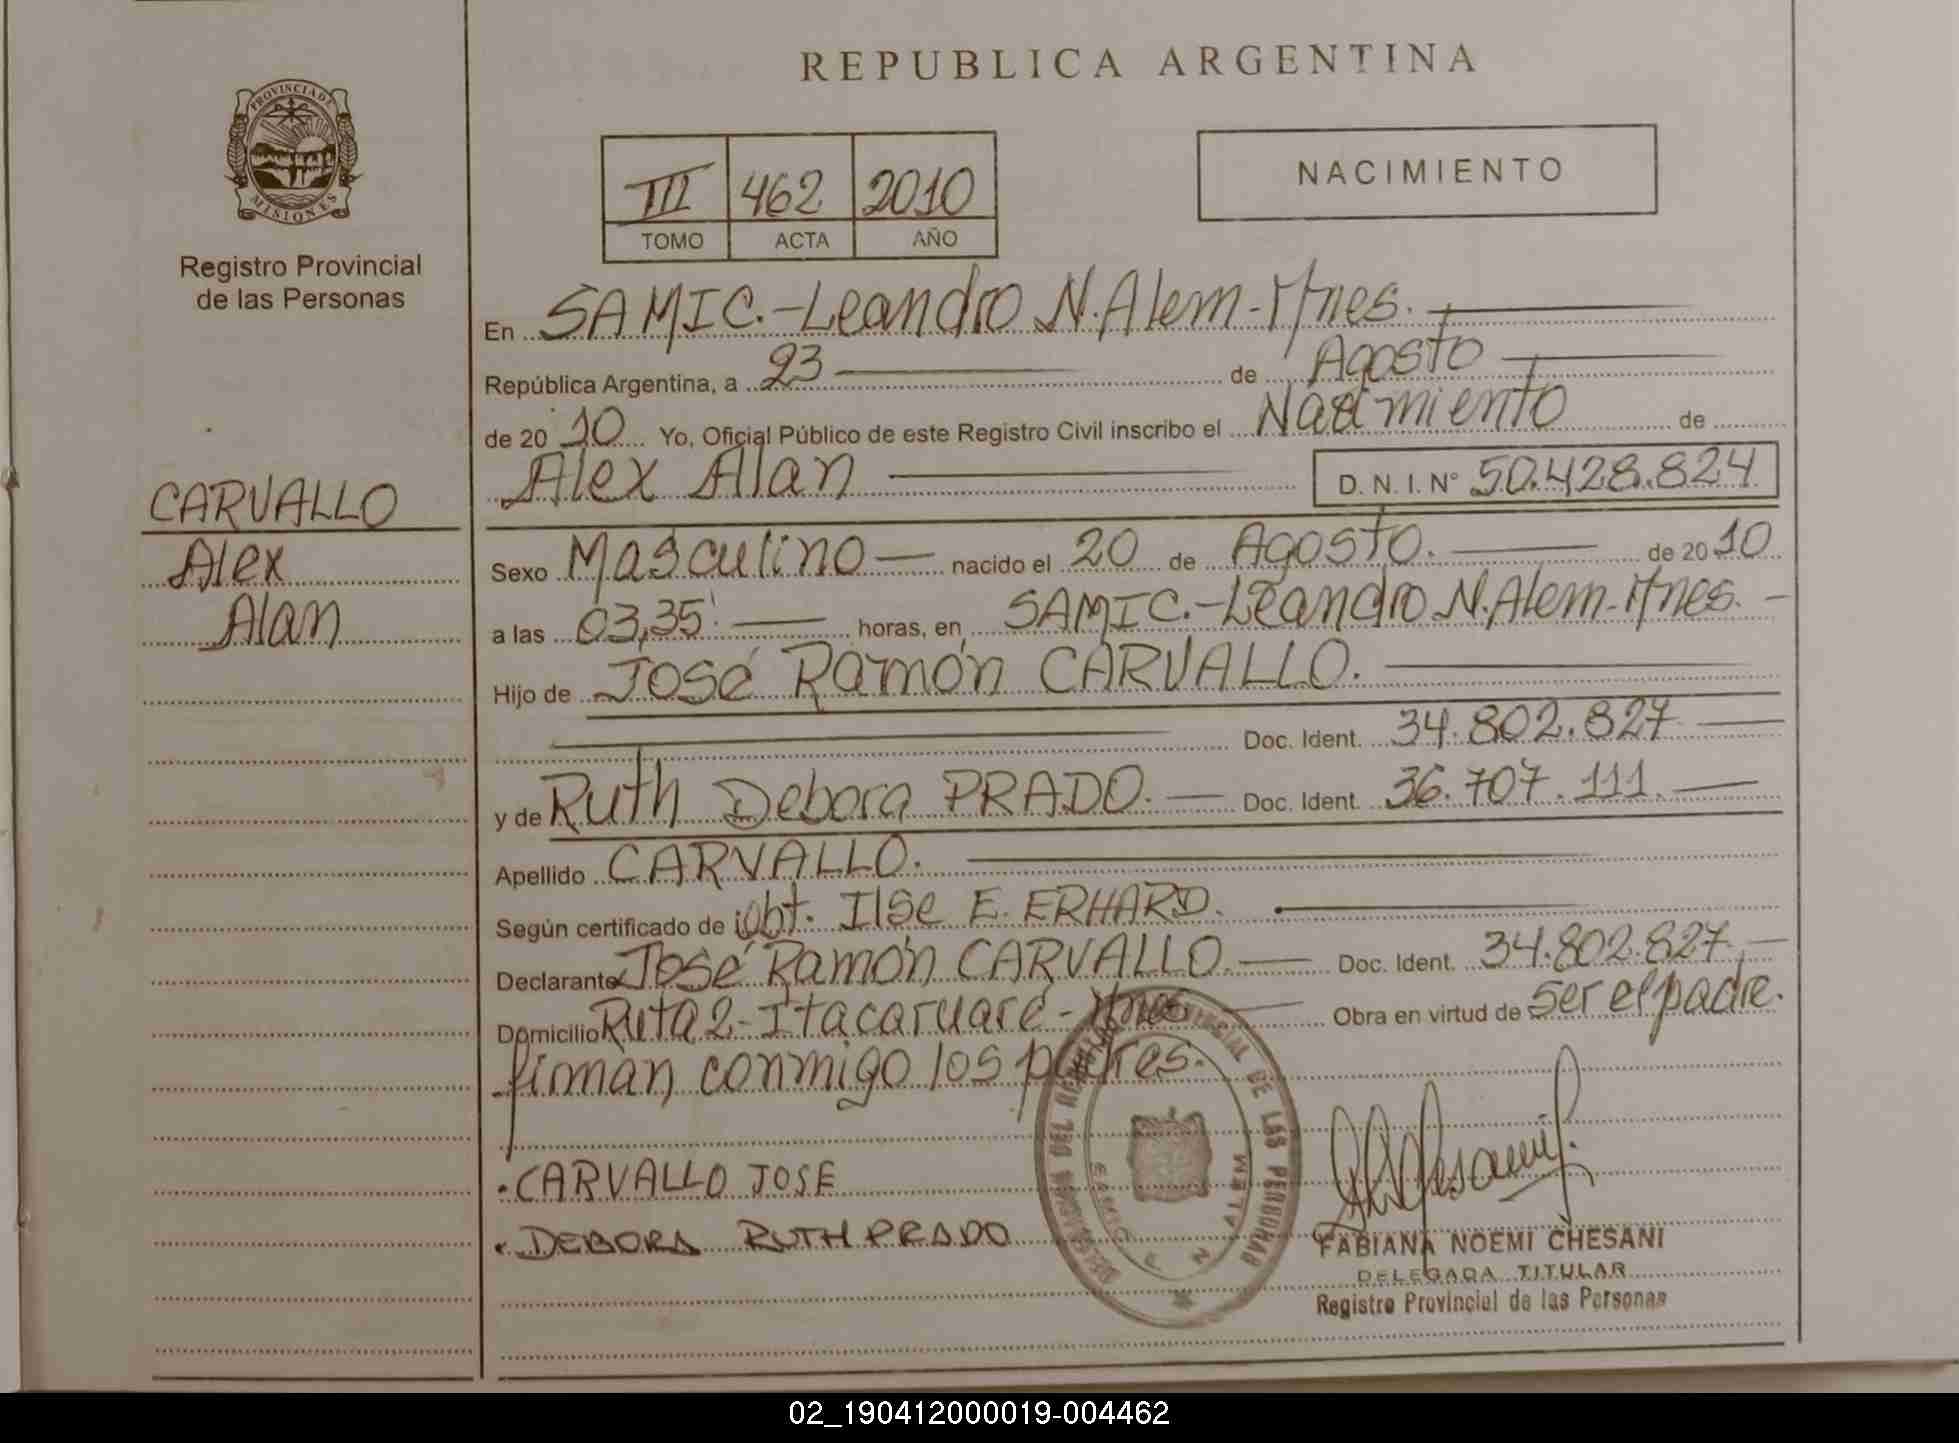 REPUBLICA ARGENTINA
PROVINCIA DE MISIONES
Registro Provincial
de las Personas
III 462 2010
TOMO ACTA AÑO
NACIMIENTO
En SAMIC.-Leandro N. Alem-Mnes.
República Argentina, a 23 de Agosto
de 20 10 Yo, Oficial Público de este Registro Civil inscribo el Nacimiento de
Alex Alan D. N. I. N° 50.428.824
CARVALLO
Alex
Alan
Sexo Masculino nacido el 20 de Agosto. de 20 10
a las 03,35' horas, en SAMIC.-Leandro N. Alem-Mnes.
Hijo de José Ramón CARVALLO.
Doc. Ident. 34.802.827
y de Ruth Debora PRADO. Doc. Ident. 36.707.111.
Apellido CARVALLO.
Según certificado de Obt. Ilse E. ERHARD.
Declarante José Ramón CARVALLO. Doc. Ident. 34.802.827.
Domicilio Ruta 2-Itacaruaré-Mnes Obra en virtud de ser el padre.
firman conmigo los padres.
CARVALLO JOSE
DEBORA RUTH PRADO
DELEGACION DEL REGISTRO PROVINCIAL DE LAS PERSONAS
SAMIC L. N. ALEM
FABIANA NOEMI CHESANI
DELEGADA TITULAR
Registro Provincial de las Personas
02_190412000019-004462